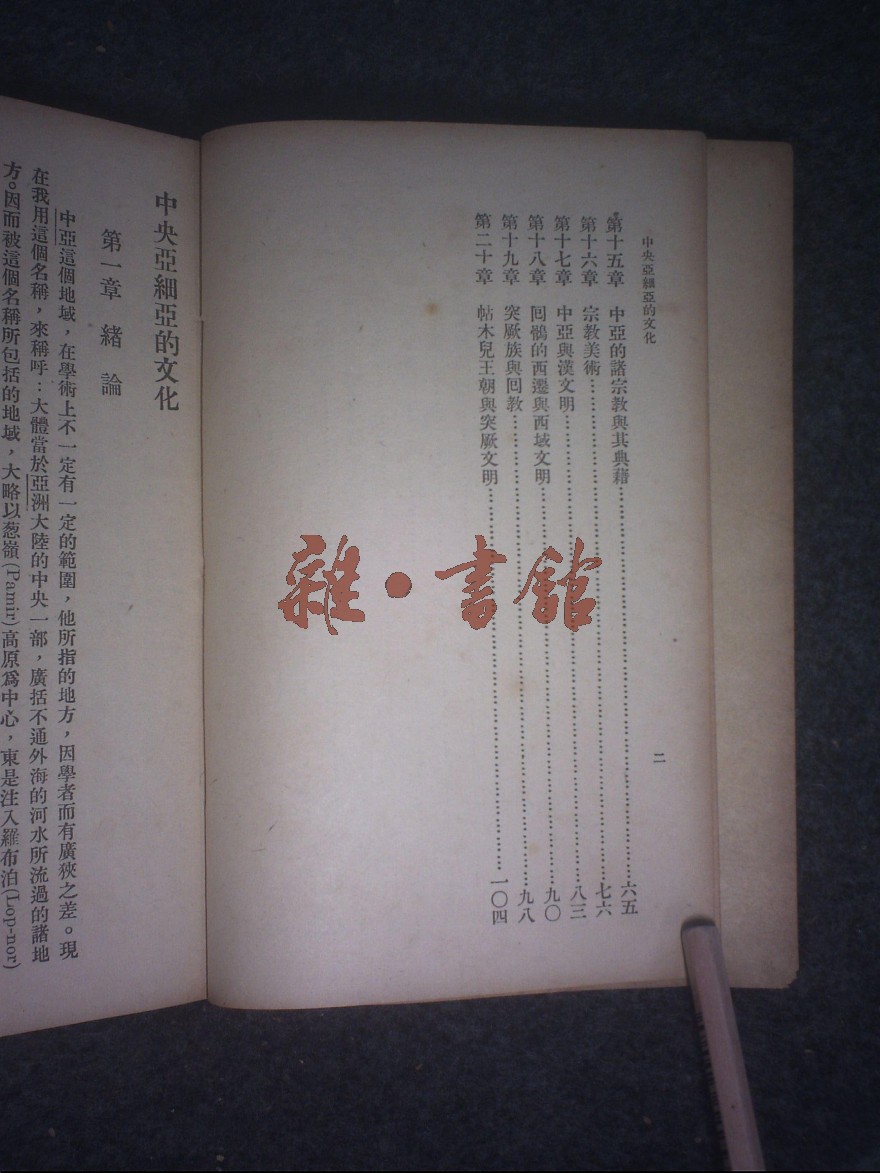 中央亞細亞的文化
二
第十五章　中亞的諸宗教與其典藉……六五
第十六章　宗教美術……七六
第十七章　中亞與漢文明……八三
第十八章　回鶻的西遷與西域文明……九〇
第十九章　突厥族與回教……九八
第二十章　帖木兒王朝與突厥文明……一〇四
雜·書館
中央亞細亞的文化
第一章　緒論
中亞這個地域，在學術上不一定有一定的範圍，他所指的地方，因學者而有廣狹之差。現
在我用這個名稱，來稱呼：大體當於亞洲大陸的中央一部，廣括不通外海的河水所流過的諸地
方。因而被這個名稱所包括的地域，大略以葱嶺(Pamir)高原爲中心，東是注入羅布泊(Lop-nor)